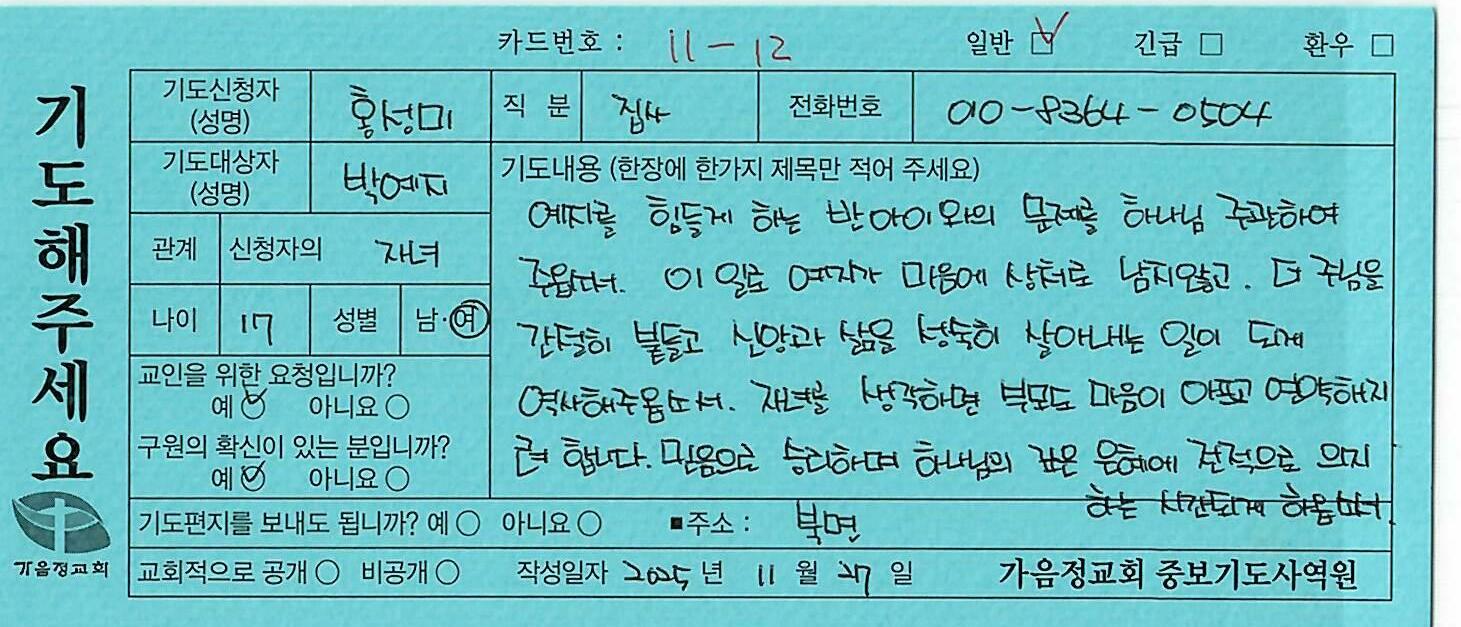 카드번호 : 11-12 일반 ☑ 긴급 □ 환우 □
기도해주세요
기도신청자 (성명) 홍성미 직 분 집사 전화번호 010-8364-0504
기도대상자 (성명) 박예지
관계 신청자의 자녀
나이 17 성별 남·여
교인을 위한 요청입니까?
예 ☑ 아니요 ○
구원의 확신이 있는 분입니까?
예 ☑ 아니요 ○
기도내용 (한장에 한가지 제목만 적어 주세요)
예지를 힘들게 하는 반 아이와의 문제를 하나님 주관하여
주옵소서. 이 일로 예지가 마음에 상처로 남지않고. 더 주님을
간절히 붙들고 신앙과 삶을 성숙히 살아내는 일이 되게
역사해주옵소서. 자녀를 생각하면 부모도 마음이 아프고 연약해지
려 합니다. 믿음으로 승리하며 하나님의 깊은 은혜에 전적으로 의지
하는 시간되게 하옵소서.
기도편지를 보내도 됩니까? 예 ○ 아니요 ○ ■주소 : 북면
교회적으로 공개 ○ 비공개 ○ 작성일자 2025 년 11 월 27 일 가음정교회 중보기도사역원
가음정교회